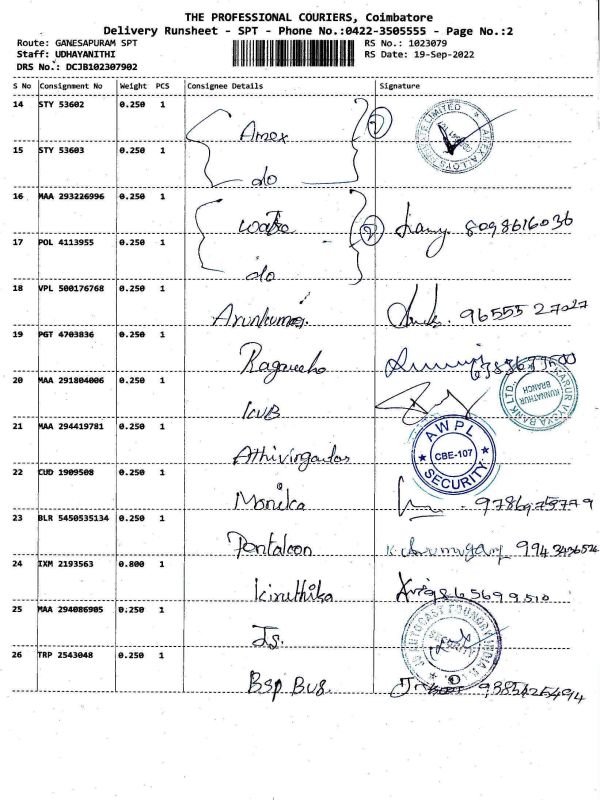 THE PROFESSIONAL COURIERS, Coimbatore
Delivery Runsheet - SPT - Phone No.:0422-3505555 - Page No.:2
Route: GANESAPURAM SPT RS No.: 1023079
Staff: UDHAYANITHI RS Date: 19-Sep-2022
DRS No.: DCJB102307902
S No Consignment No Weight PCS Consignee Details Signature
14 STY 53602 0.250 1
Amex 2
15 STY 53603 0.250 1
do
16 MAA 293226996 0.250 1
2 8098616036
17 POL 4113955 0.250 1
do
18 VPL 500176768 0.250 1
Arunkumar. 96555 27027
19 PGT 4703836 0.250 1
20 MAA 291804006 0.250 1
KVB
KARUR VYSYA BANK LTD.,
KUNNATHUR
BRANCH
21 MAA 294419781 0.250 1
AWPL
CBE-107
SECURITY
22 CUD 1909508 0.250 1
Monika 9786975779
23 BLR 5450535134 0.250 1
Pantaloon
24 IXM 2193563 0.800 1
Kiruthika 9865699510
25 MAA 294086905 0.250 1
Js.
26 TRP 2543048 0.250 1
Bsp Bus. 9385425494